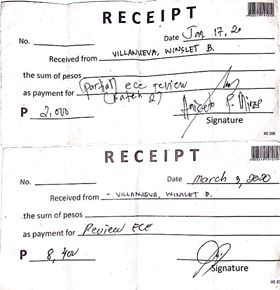 RECEIPT
No. Date Jan 17, 20
Received from VILLANUEVA, WINSLET B.
the sum of pesos
as payment for partial ece review
(batch 2)
P 2,000
Signature
RECEIPT
No. Date March 3, 2020
Received from - VILLANUEVA, WINSLET B.
the sum of pesos
as payment for Review ECE
P 8,400
Signature